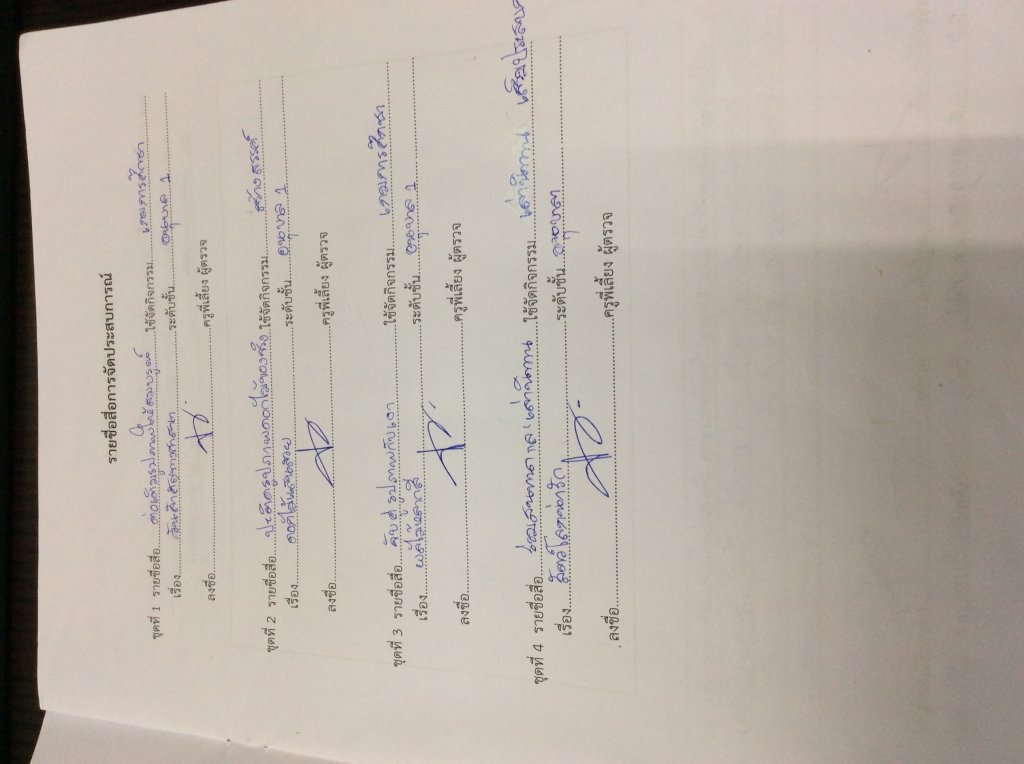 รายชื่อสื่อการจัดประสบการณ์
ชุดที่ 1 รายชื่อสื่อ...ต่อเติมรูปภาพให้สมบูรณ์...ใช้จัดกิจกรรม...เกมการศึกษา
เรื่อง...วันสำคัญทางศาสนา...ระดับชั้น...อนุบาล 1
ลงชื่อ...ครูพี่เลี้ยง ผู้ตรวจ
ชุดที่ 2 รายชื่อสื่อ...ปะติดรูปภาพดอกไม้...ใช้จัดกิจกรรม...สร้างสรรค์
เรื่อง...ดอกไม้แสนสวย...ระดับชั้น...อนุบาล 1
ลงชื่อ...ครูพี่เลี้ยง ผู้ตรวจ
ชุดที่ 3 รายชื่อสื่อ...จับคู่รูปภาพกับเงา...ใช้จัดกิจกรรม...เกมการศึกษา
เรื่อง...ผลไม้หลากสี...ระดับชั้น...อนุบาล 1
ลงชื่อ...ครูพี่เลี้ยง ผู้ตรวจ
ชุดที่ 4 รายชื่อสื่อ...เล่านิทาน...ใช้จัดกิจกรรม...เล่านิทาน เสริมประสบ
เรื่อง...สัตว์โลกน่ารัก...ระดับชั้น...อนุบาล
ลงชื่อ...ครูพี่เลี้ยง ผู้ตรวจ